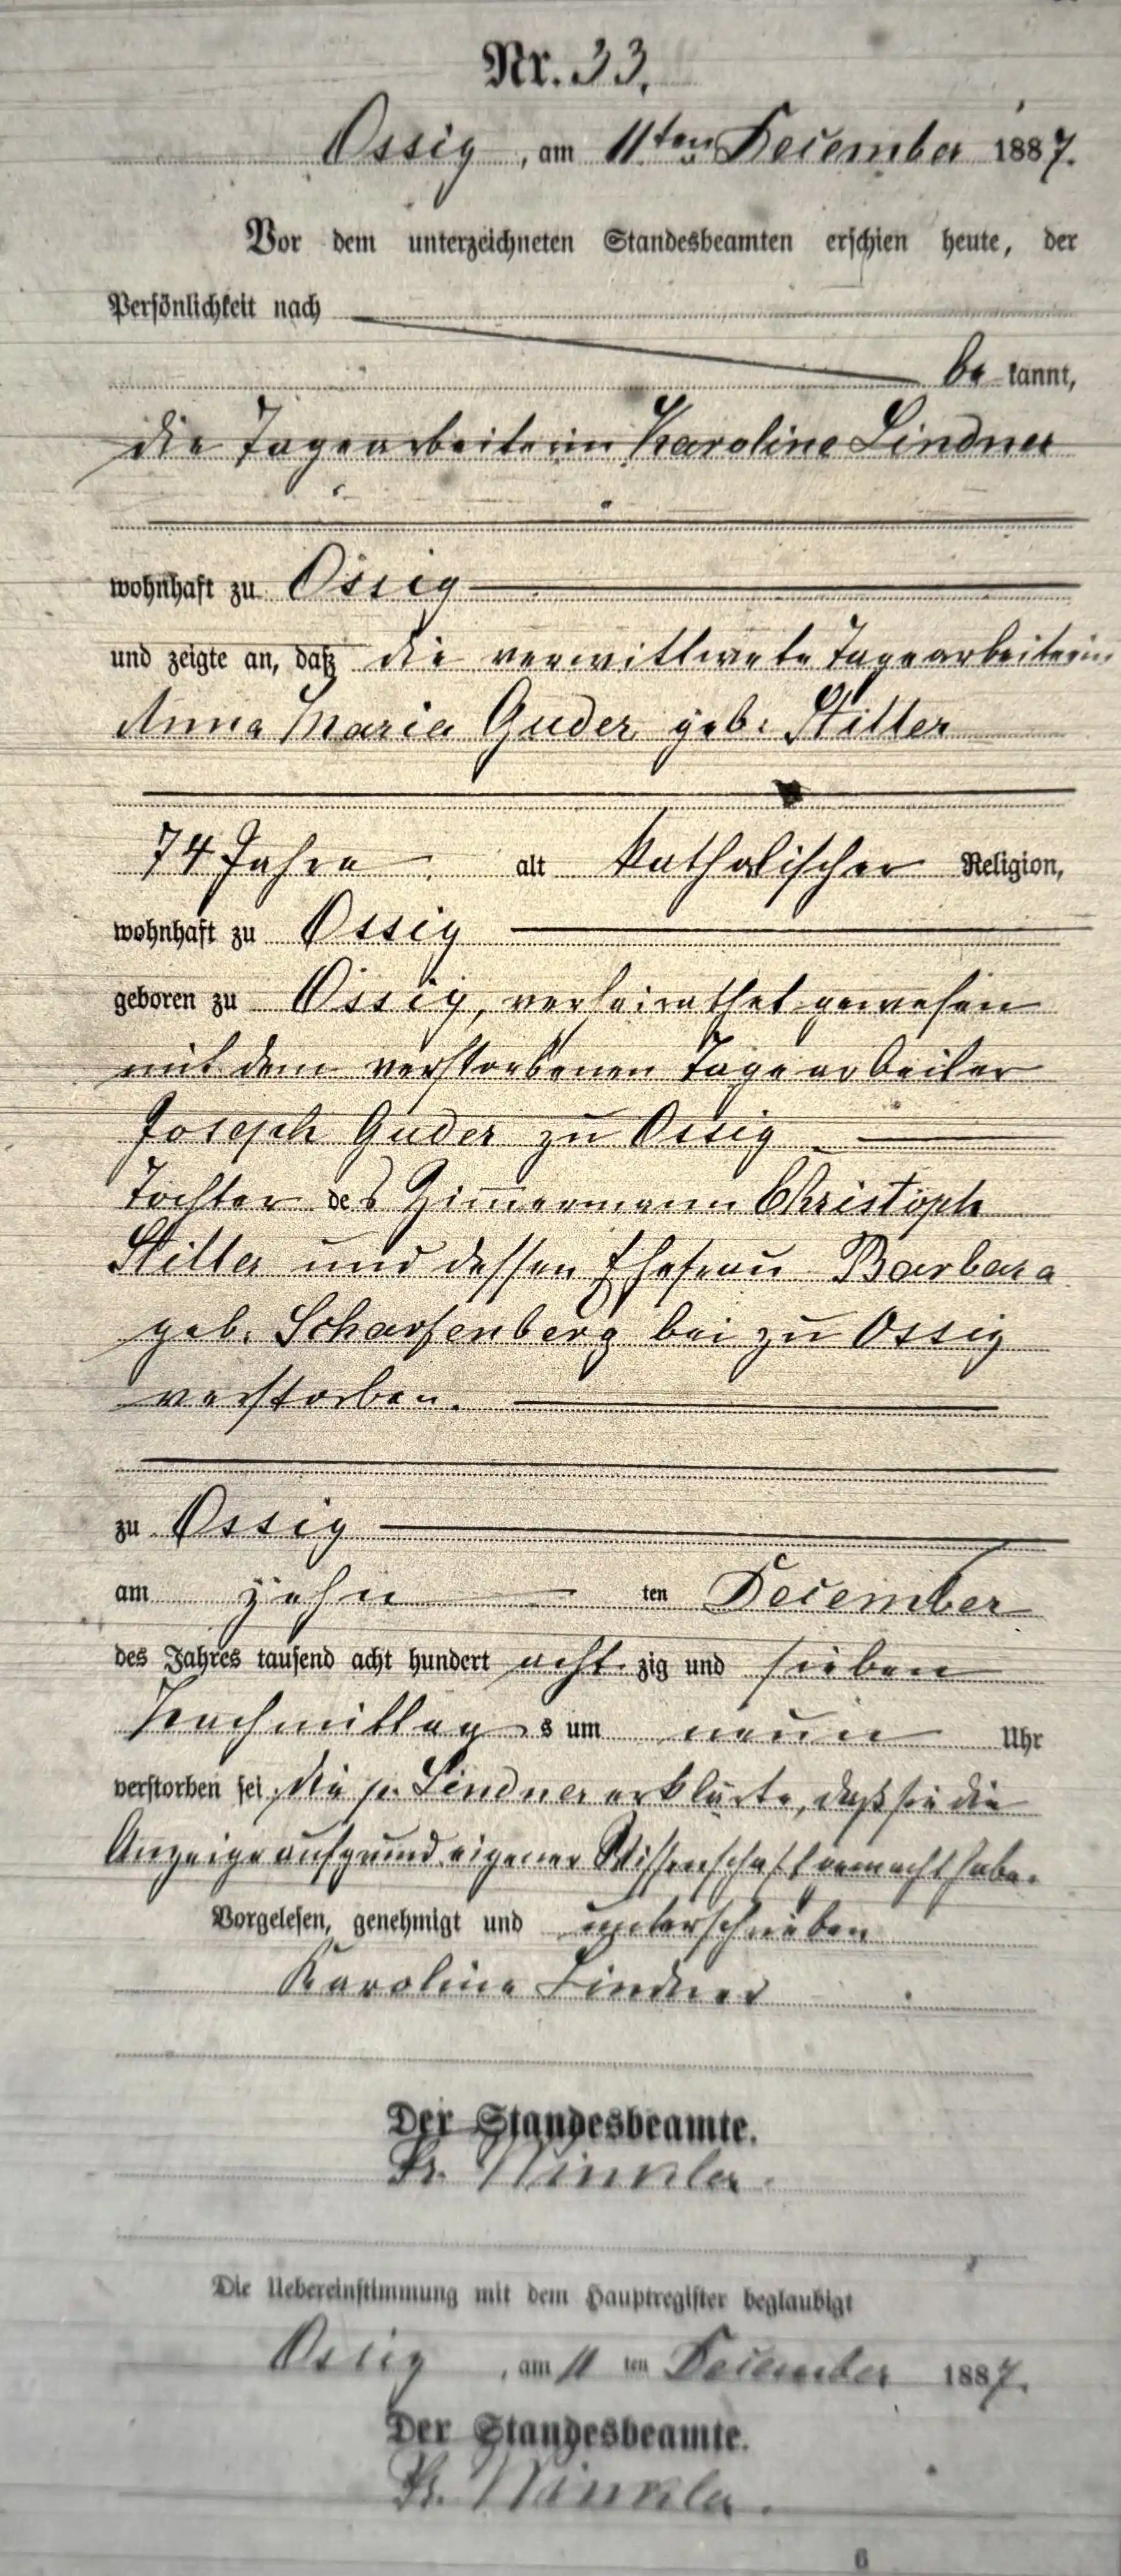 Nr. 33.
Ossig, am 11ten December 1887.
Vor dem unterzeichneten Standesbeamten erschien heute, der
Persönlichkeit nach
be kannt,
die Tagearbeiterin Karoline Lindner
wohnhaft zu Ossig
und zeigte an, daß die verwittwete Tagearbeiterin
Anna Maria Guder geb. Stiller
74 Jahre alt katholischer Religion,
wohnhaft zu Ossig
geboren zu Ossig, verheirathet gewesen
mit dem verstorbenen Tagearbeiter
Joseph Guder zu Ossig
Tochter des Zimmermann Christoph
Stiller und dessen Ehefrau Barbara
geb. Scharfenberg bei zu Ossig
verstorben.
zu Ossig
am zehn ten December
des Jahres tausend acht hundert acht zig und sieben
Nachmittag s um neun Uhr
verstorben sei, die p. Lindner erklärte, daß sie die
Anzeige aufgrund eigener Wissenschaft gemacht habe.
Vorgelesen, genehmigt und unterschrieben
Karoline Lindner
Der Standesbeamte.
Winkler.
Die Uebereinstimmung mit dem Hauptregister beglaubigt
Ossig, am 11 ten December 1887.
Der Standesbeamte.
Winkler.
6